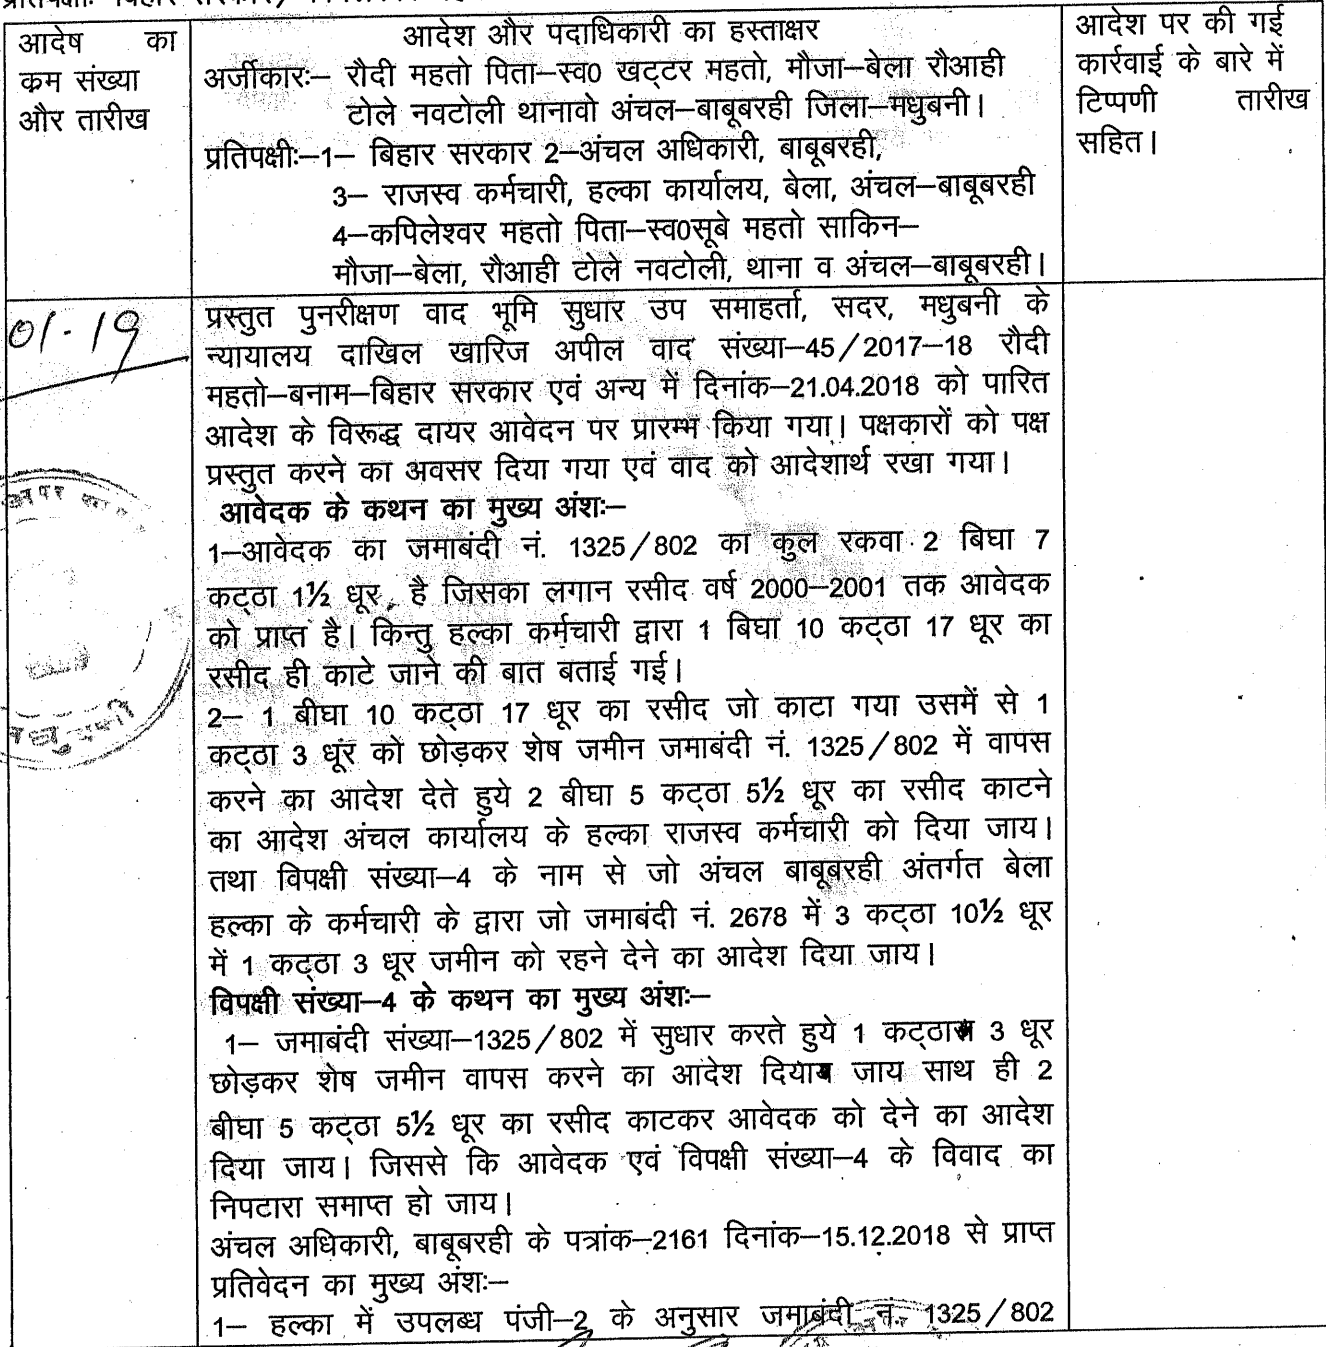 आदेष का
क्रम संख्या
और तारीख
आदेश और पदाधिकारी का हस्ताक्षर
अर्जीकारः– रौदी महतो पिता–स्व0 खट्टर महतो, मौजा–बेला रौआही
टोले नवटोली थानावो अंचल–बाबूबरही जिला–मधुबनी।
प्रतिपक्षीः–1– बिहार सरकार 2–अंचल अधिकारी, बाबूबरही,
3– राजस्व कर्मचारी, हल्का कार्यालय, बेला, अंचल–बाबूबरही
4–कपिलेश्वर महतो पिता–स्व0सूबे महतो साकिन–
मौजा–बेला, रौआही टोले नवटोली, थाना व अंचल–बाबूबरही।
आदेश पर की गई
कार्रवाई के बारे में
टिप्पणी तारीख
सहित।
01.19
प्रस्तुत पुनरीक्षण वाद भूमि सुधार उप समाहर्ता, सदर, मधुबनी के
न्यायालय दाखिल खारिज अपील वाद संख्या–45/2017–18 रौदी
महतो–बनाम–बिहार सरकार एवं अन्य में दिनांक–21.04.2018 को पारित
आदेश के विरूद्ध दायर आवेदन पर प्रारम्भ किया गया। पक्षकारों को पक्ष
प्रस्तुत करने का अवसर दिया गया एवं वाद को आदेशार्थ रखा गया।
आवेदक के कथन का मुख्य अंशः–
1–आवेदक का जमाबंदी नं. 1325/802 का कुल रकवा 2 बिघा 7
कट्ठा 1½ धूर, है जिसका लगान रसीद वर्ष 2000–2001 तक आवेदक
को प्राप्त है। किन्तु हल्का कर्मचारी द्वारा 1 बिघा 10 कट्ठा 17 धूर का
रसीद ही काटे जाने की बात बताई गई।
2– 1 बीघा 10 कट्ठा 17 धूर का रसीद जो काटा गया उसमें से 1
कट्ठा 3 धूर को छोड़कर शेष जमीन जमाबंदी नं. 1325/802 में वापस
करने का आदेश देते हुये 2 बीघा 5 कट्ठा 5½ धूर का रसीद काटने
का आदेश अंचल कार्यालय के हल्का राजस्व कर्मचारी को दिया जाय।
तथा विपक्षी संख्या–4 के नाम से जो अंचल बाबूबरही अंतर्गत बेला
हल्का के कर्मचारी के द्वारा जो जमाबंदी नं. 2678 में 3 कट्ठा 10½ धूर
में 1 कट्ठा 3 धूर जमीन को रहने देने का आदेश दिया जाय।
विपक्षी संख्या–4 के कथन का मुख्य अंशः–
1– जमाबंदी संख्या–1325/802 में सुधार करते हुये 1 कट्ठा 3 धूर
छोड़कर शेष जमीन वापस करने का आदेश दिया जाय साथ ही 2
बीघा 5 कट्ठा 5½ धूर का रसीद काटकर आवेदक को देने का आदेश
दिया जाय। जिससे कि आवेदक एवं विपक्षी संख्या–4 के विवाद का
निपटारा समाप्त हो जाय।
अंचल अधिकारी, बाबूबरही के पत्रांक–2161 दिनांक–15.12.2018 से प्राप्त
प्रतिवेदन का मुख्य अंशः–
1– हल्का में उपलब्ध पंजी–2 के अनुसार जमाबंदी नं. 1325/802